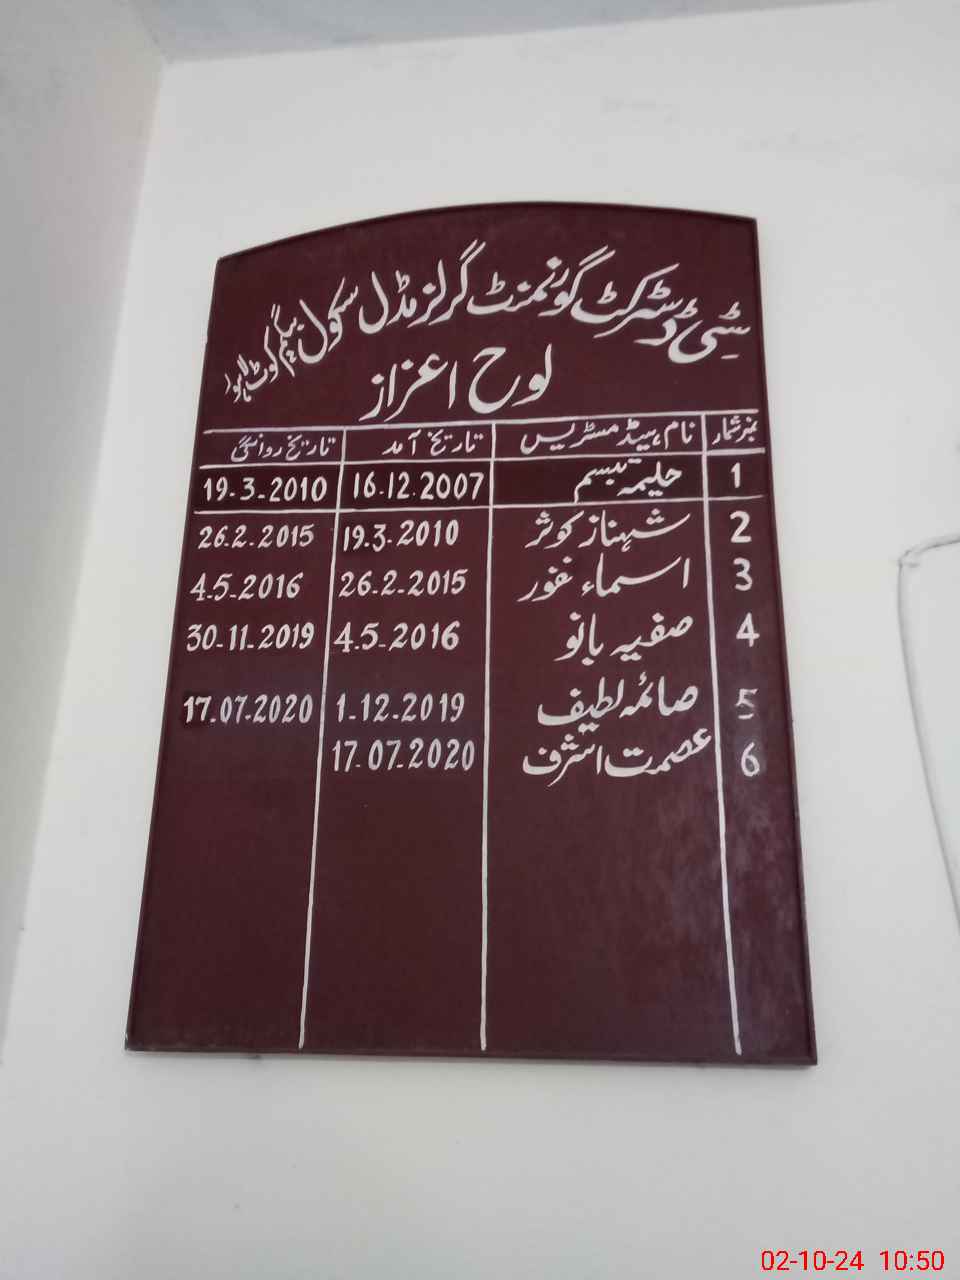 سٹی ڈسٹرکٹ گورنمنٹ گرلز مڈل سکول بیگم کوٹ لاہور
لوح اعزاز
نمبر شمار نام ہیڈ مسٹریس تاریخ آمد تاریخ روانگی
1 حلیمہ تبسم 16.12.2007 19-3-2010
2 شہناز کوثر 19.3-2010 26.2-2015
3 اسماء غفور 26-2-2015 4.5-2016
4 صفیہ بانو 4.5-2016 30-11-2019
5 صائمہ لطیف 1-12-2019 17.07.2020
6 عصمت اشرف 17-07-2020
02-10-24 10:50